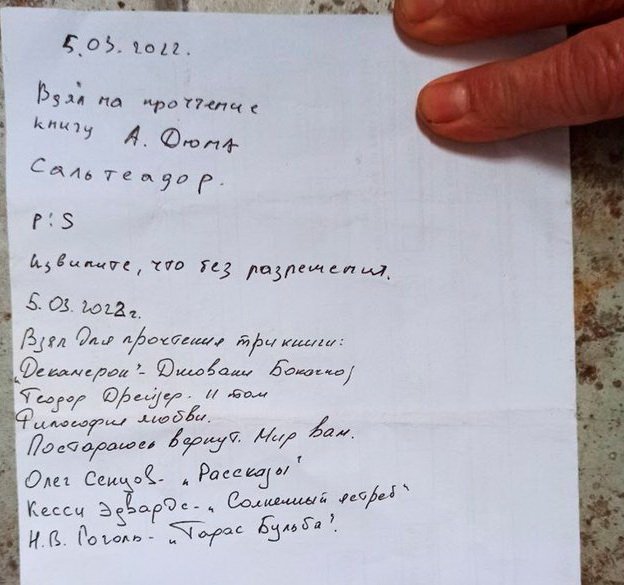 5.03.2022.
Взял на прочтение
книгу А. Дюма
Сальтеадор.
P:S
Извините, что без разрешения.
5.03.2022г.
Взял для прочтения три книги:
„Декамерон"- Джовани Бокаччо;
Теодор Дрейзер. II том
Философия любви.
Постараюсь вернут. Мир вам.
Олег Сенцов- „Рассказы"
Кесси Эдвардс- „Солнечный ястреб"
Н.В. Гоголь- „Тарас Бульба".